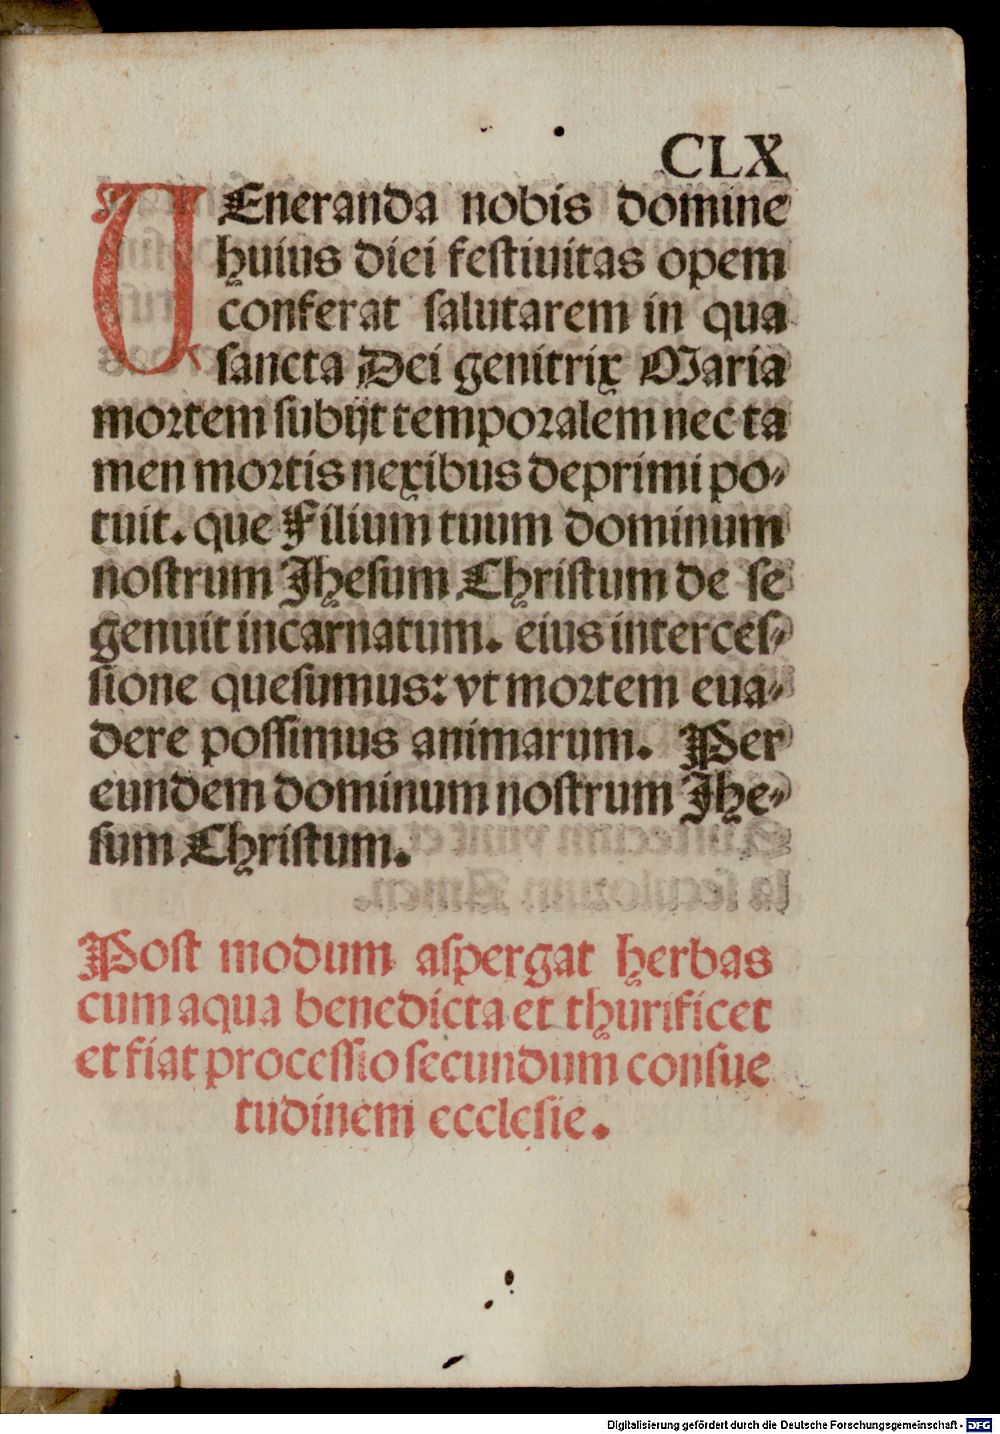 CLX
UEneranda nobis domine
huius diei festiuitas opem
conferat salutarem in qua
sancta Dei genitrix Maria
mortem subijt temporalem nec ta
men mortis nexibus deprimi po-
tuit. que Filium tuum dominum
nostrum Jhesum Christum de se
genuit incarnatum. eius interces-
sione quesumus: vt mortem eua-
dere possimus animarum. Per
eundem dominum nostrum Jhe-
sum Christum.
Post modum aspergat herbas
cum aqua benedicta et thurificet
et fiat processio secundum consue
tudinem ecclesie.
Digitalisierung gefördert durch die Deutsche Forschungsgemeinschaft - DFG